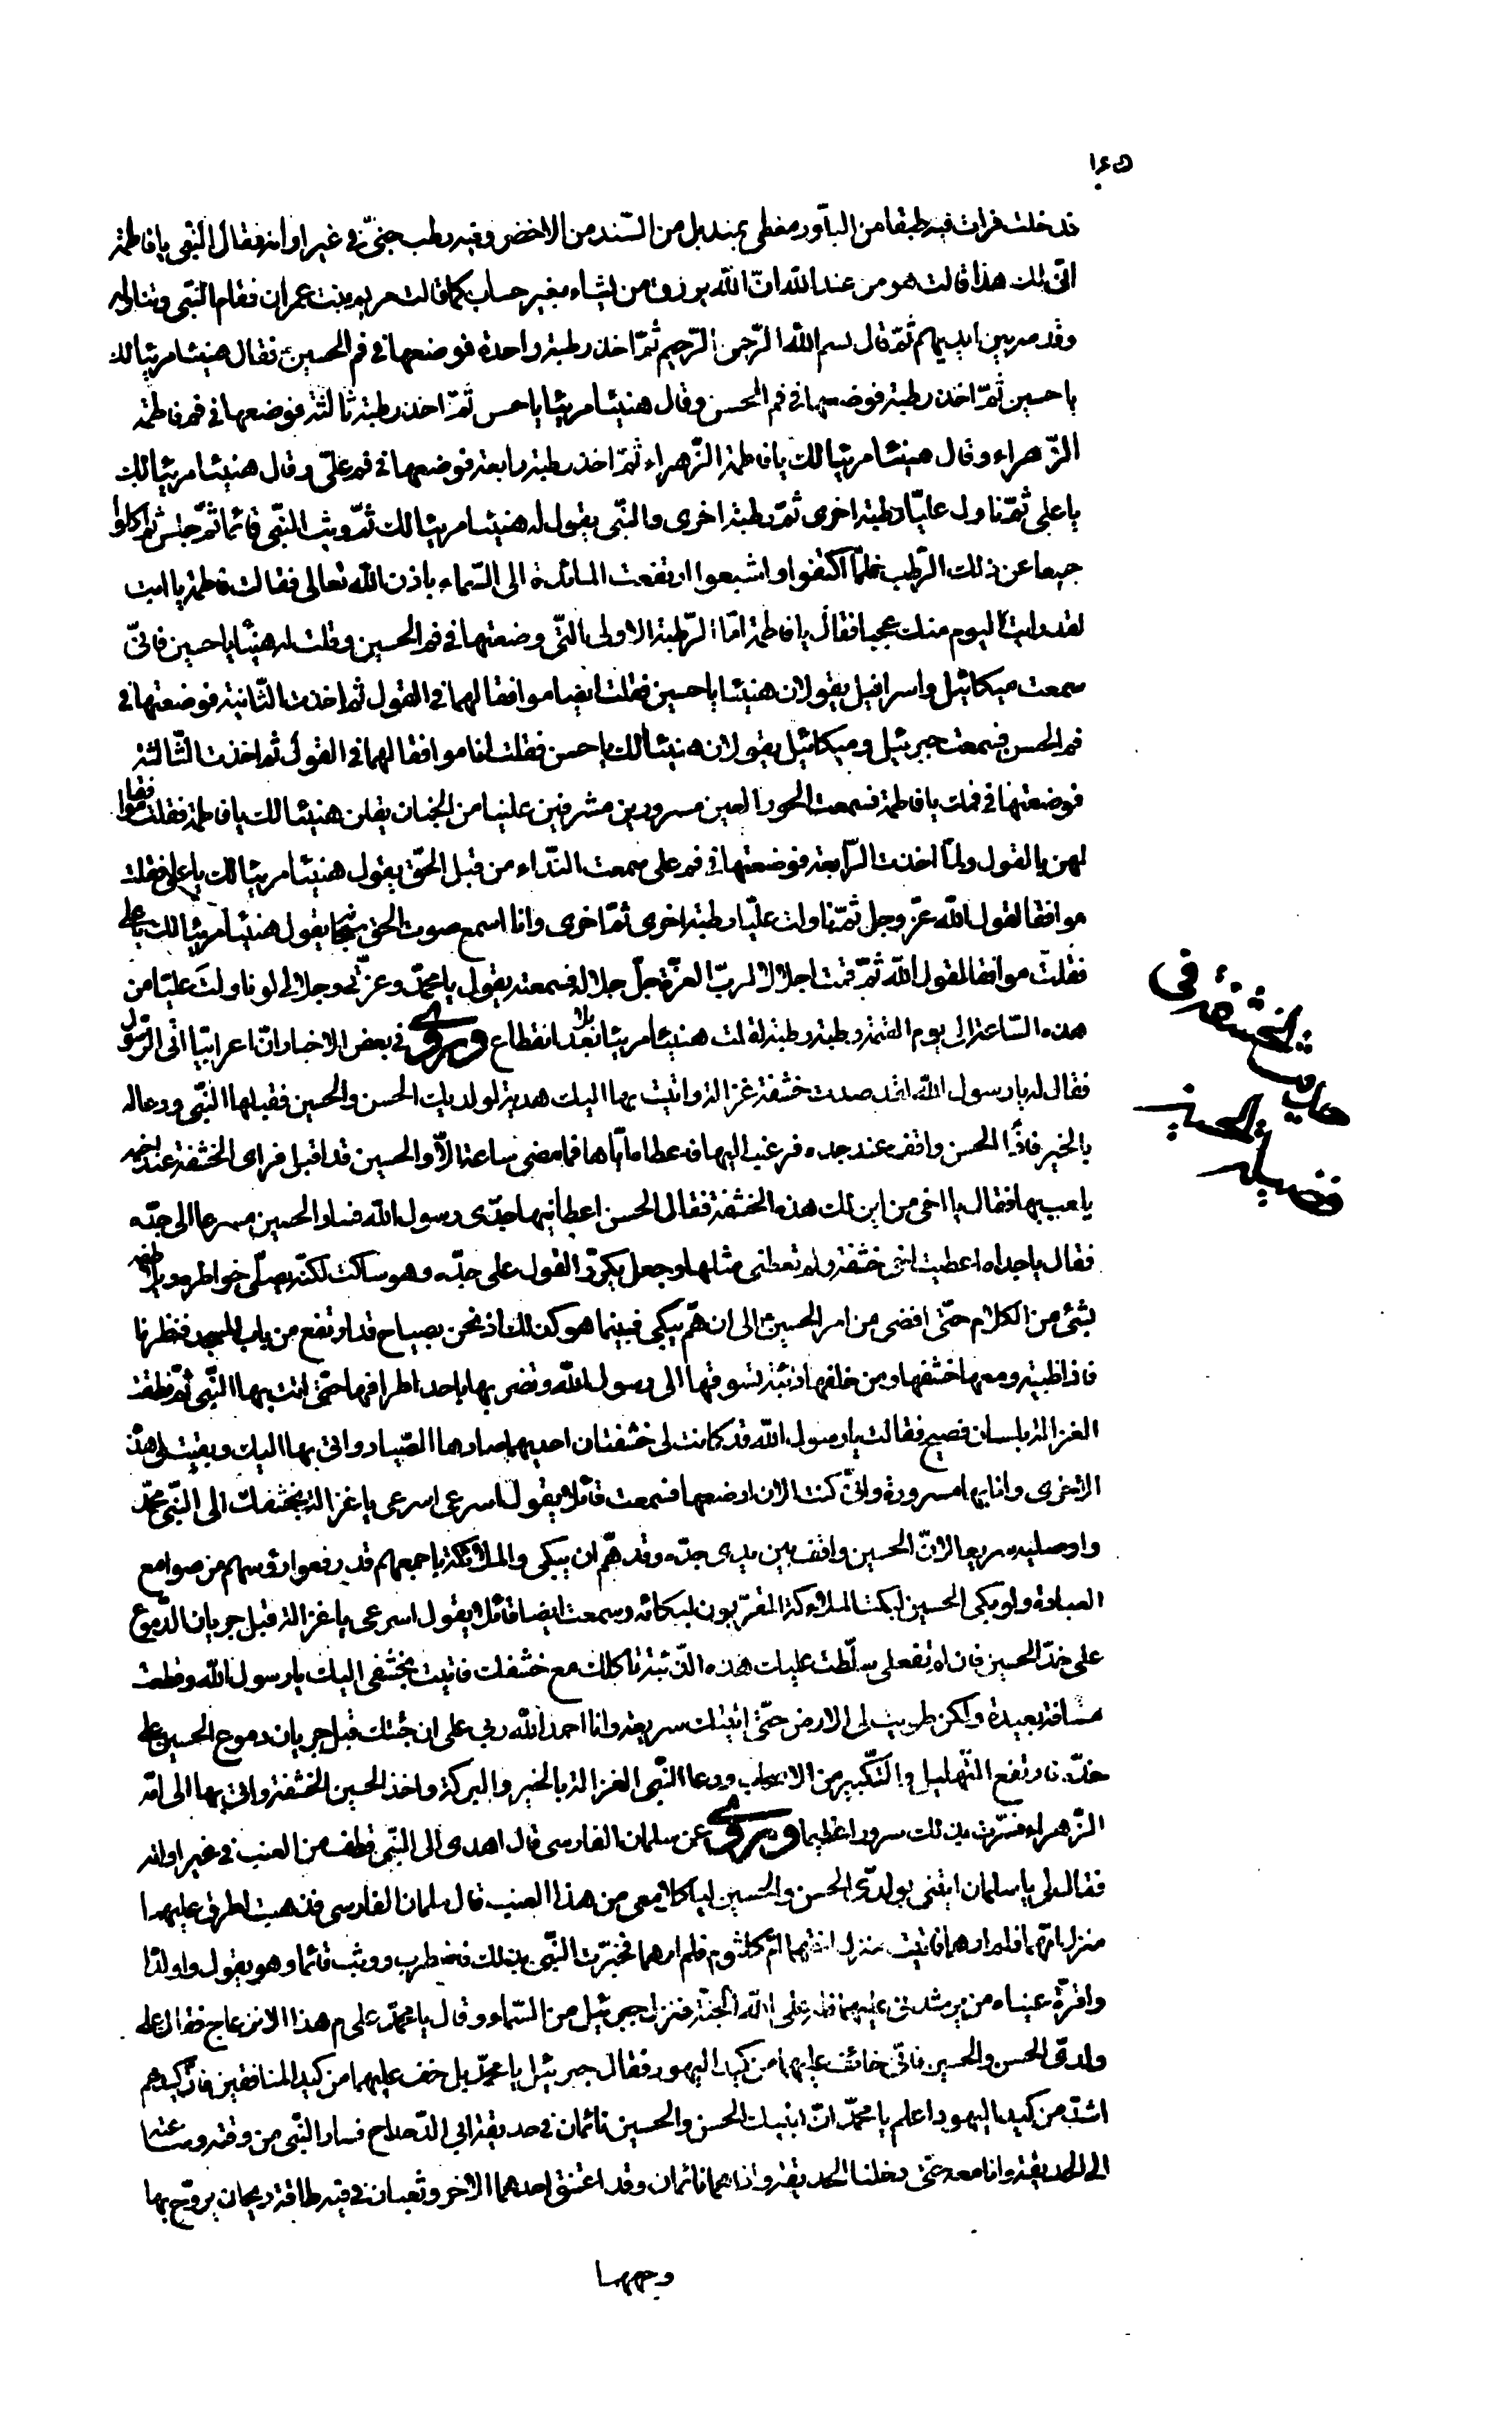 ١٤٥
فدخلت فرات فيه طبقا من البلّور مغطى بمنديل من السّندس الاخضر وفيه رطب جنىّ في غير اوانه فقال النّبى يا فاطمة
انّى لك هذا قالت هو من عند اللّه انّ اللّه يرزق من يشاء بغير حساب كما قالت مريم بنت عمران فقام النّبى وتناوله
وقدمه بين ايديهم ثمّ قال بسم اللّه الرّحمن الرّحيم ثمّ اخذ رطبة واحدة فوضعها في فم الحسين فقال هنيئا مريئا لك
يا حسين ثمّ اخذ رطبة فوضعها في فم الحسن وقال هنيئا مريئا يا حسن ثمّ اخذ رطبة ثالثة فوضعها في فم فاطمة
الزّهراء وقال هنيئا مريئا لك يا فاطمة الزّهراء ثمّ اخذ رطبة رابعة فوضعها في فم علىّ وقال هنيئا مريئا لك
يا على ثمّ ناول عليّا رطبة اخرى ثمّ رطبة اخرى والنّبى يقول له هنيئا مريئا لك ثمّ وثب النّبى قائما ثمّ جلس ثم اكلوا
جميعا عن ذلك الرّطب فلمّا اكتفوا واشبعوا ارتفعت المائدة الى السّماء باذن اللّه تعالى فقالت فاطمة يا ابت
لقد رايت اليوم منك عجبا فقال يا فاطمة امّا الرّطبة الاولى الّتى وضعتها في فم الحسين وقلت له هنيئا يا حسين فانّى
سمعت ميكائيل واسرافيل يقولان هنيئا يا حسين فقلت ايضا موافقا لهما في القول ثم اخذت الثّانية فوضعتها في
فم الحسن فسمعت جبرئيل وميكائيل يقولان هنيئا لك يا حسن فقلت انا موافقا لهما في القول ثم اخذت الثّالثة
فوضعتها في فمك يا فاطمة فسمعت الحور العين مسرورين مشرفين علينا من الجنان يقلن هنيئا لك يا فاطمة فقلت موافقا
لهن بالقول ولمّا اخذت الرّابعة فوضعتها في فم على سمعت النّداء من قبل الحقّ يقول هنيئا مريئا لك يا على فقلت
موافقا لقول اللّه عزّ وجل ثمّ ناولت عليّا رطبة اخرى ثمّ اخرى وانا اسمع صوت الحق يقول هنيئا مريئا لك يا على
فقلت موافقا لقول اللّه ثمّ قمت اجلالا لربّ العزّة جلّ جلاله فسمعته يقول يا محمّد وعزّتى وجلالى لو ناولت عليّا من
هذه السّاعة الى يوم القيمة رطبة رطبة لقلت هنيئا مريئا بلا انقطاع وروى في بعض الاخبار انّ اعرابيّا اتى الرّسول
فقال له يا رسول اللّه لقد صدت خشفة غزالة واتيت بها اليك هدية لولديك الحسن والحسين فقبلها النّبى ودعا له
بالخير فاذا الحسن واقف عند جده فرغب اليها فاعطاه ايّاها فما مضى ساعة الّا والحسين قد اقبل فراى الخشفة عند اخيه
يلعب بها فقال يا اخى من اين لك هذه الخشفة فقال الحسن اعطانيها جدّى رسول اللّه فسار الحسين مسرعا الى جدّه
فقال يا جداه اعطيت اخى خشفة ولم تعطنى مثلها وجعل يكرّر القول على جدّه وهو ساكت لكنّه يسلّى خواطره ويلاطفه
بشئ من الكلام حتّى افضى من امر الحسين الى ان همّ يبكى فبينما هو كذلك اذ نحن بصياح قد ارتفع من باب المسجد فنظرنا
فاذا ظبية ومعها خشفها ومن خلفها ذئبة تسوقها الى رسول اللّه وتضربها باحد اطرافها حتّى اتت بها النّبى ثمّ نطقت
الغزالة بلسان فصيح فقالت يا رسول اللّه قد كانت لى خشفتان احديهما صادها الصّياد واتى بها اليك وبقيت لى هذه
الاخرى وانا بها مسرورة وانّى كنت الان ارضعها فسمعت قائلا يقول اسرعى اسرعى يا غزالة بخشفك الى النّبى محمّد
واوصليه سريعا لانّ الحسين واقف بين يدى جدّه وقد همّ ان يبكى والملائكة باجمعهم قد رفعوا رؤسهم من صوامع
العبادة ولو بكى الحسين لبكت الملائكة المقرّبون لبكائه وسمعت ايضا قائلا يقول اسرعى يا غزالة قبل جريان الدّموع
على خدّ الحسين فان لم تفعلى سلّطت عليك هذه الذّئبة تاكلك مع خشفك فاتيت بخشفى اليك يا رسول اللّه وقطعت
مسافة بعيدة ولكن طويت لى الارض حتّى اتيتك سريعة وانا احمد اللّه ربى على ان جئتك قبل جريان دموع الحسين على
خدّه فارتفع التّهليل والتّكبير من الاصحاب ودعا النّبى الغزالة بالخير والبركة واخذ الحسين الخشفة واتى بها الى امّه
الزّهراء فسرّت بذلك سرورا عظيما وروى عن سلمان الفارسى قال اهدى الى النّبى قطف من العنب في غير اوانه
فقال لى يا سلمان ايتنى بولدىّ الحسن والحسين لياكلا معى من هذا العنب قال سلمان الفارسى فذهبت اطرق عليهما
منزل امّهما فلم ارهما فاتيت منزل اختهما امّ كلثوم فلم ارهما فخبرت النّبى بذلك فاضطرب ووثب قائما وهو يقول وا ولداه
وا قرّة عيناه من يرشدنى عليهما فله على اللّه الجنّة فنزل جبرئيل من السّماء وقال يا محمّد على م هذا الانزعاج فقال على
ولدىّ الحسن والحسين فانّى خائف عليهما من كيد اليهود فقال جبرئيل يا محمّد بل خف عليهما من كيد المنافقين فان كيدهم
اشدّ من كيد اليهود اعلم يا محمّد انّ ابنيك الحسن والحسين نائمان في حديقة ابى الدّحداح فسار النّبى من وقته وساعته
الى الحديقة وانا معه حتّى دخلنا الحديقة واذا هما نائمان وقد اعتنق احدهما الاخر وثعبان في فيه طاقة ريحان يروّح بها
وجههما
الخشفة في
فضيلة الحسين